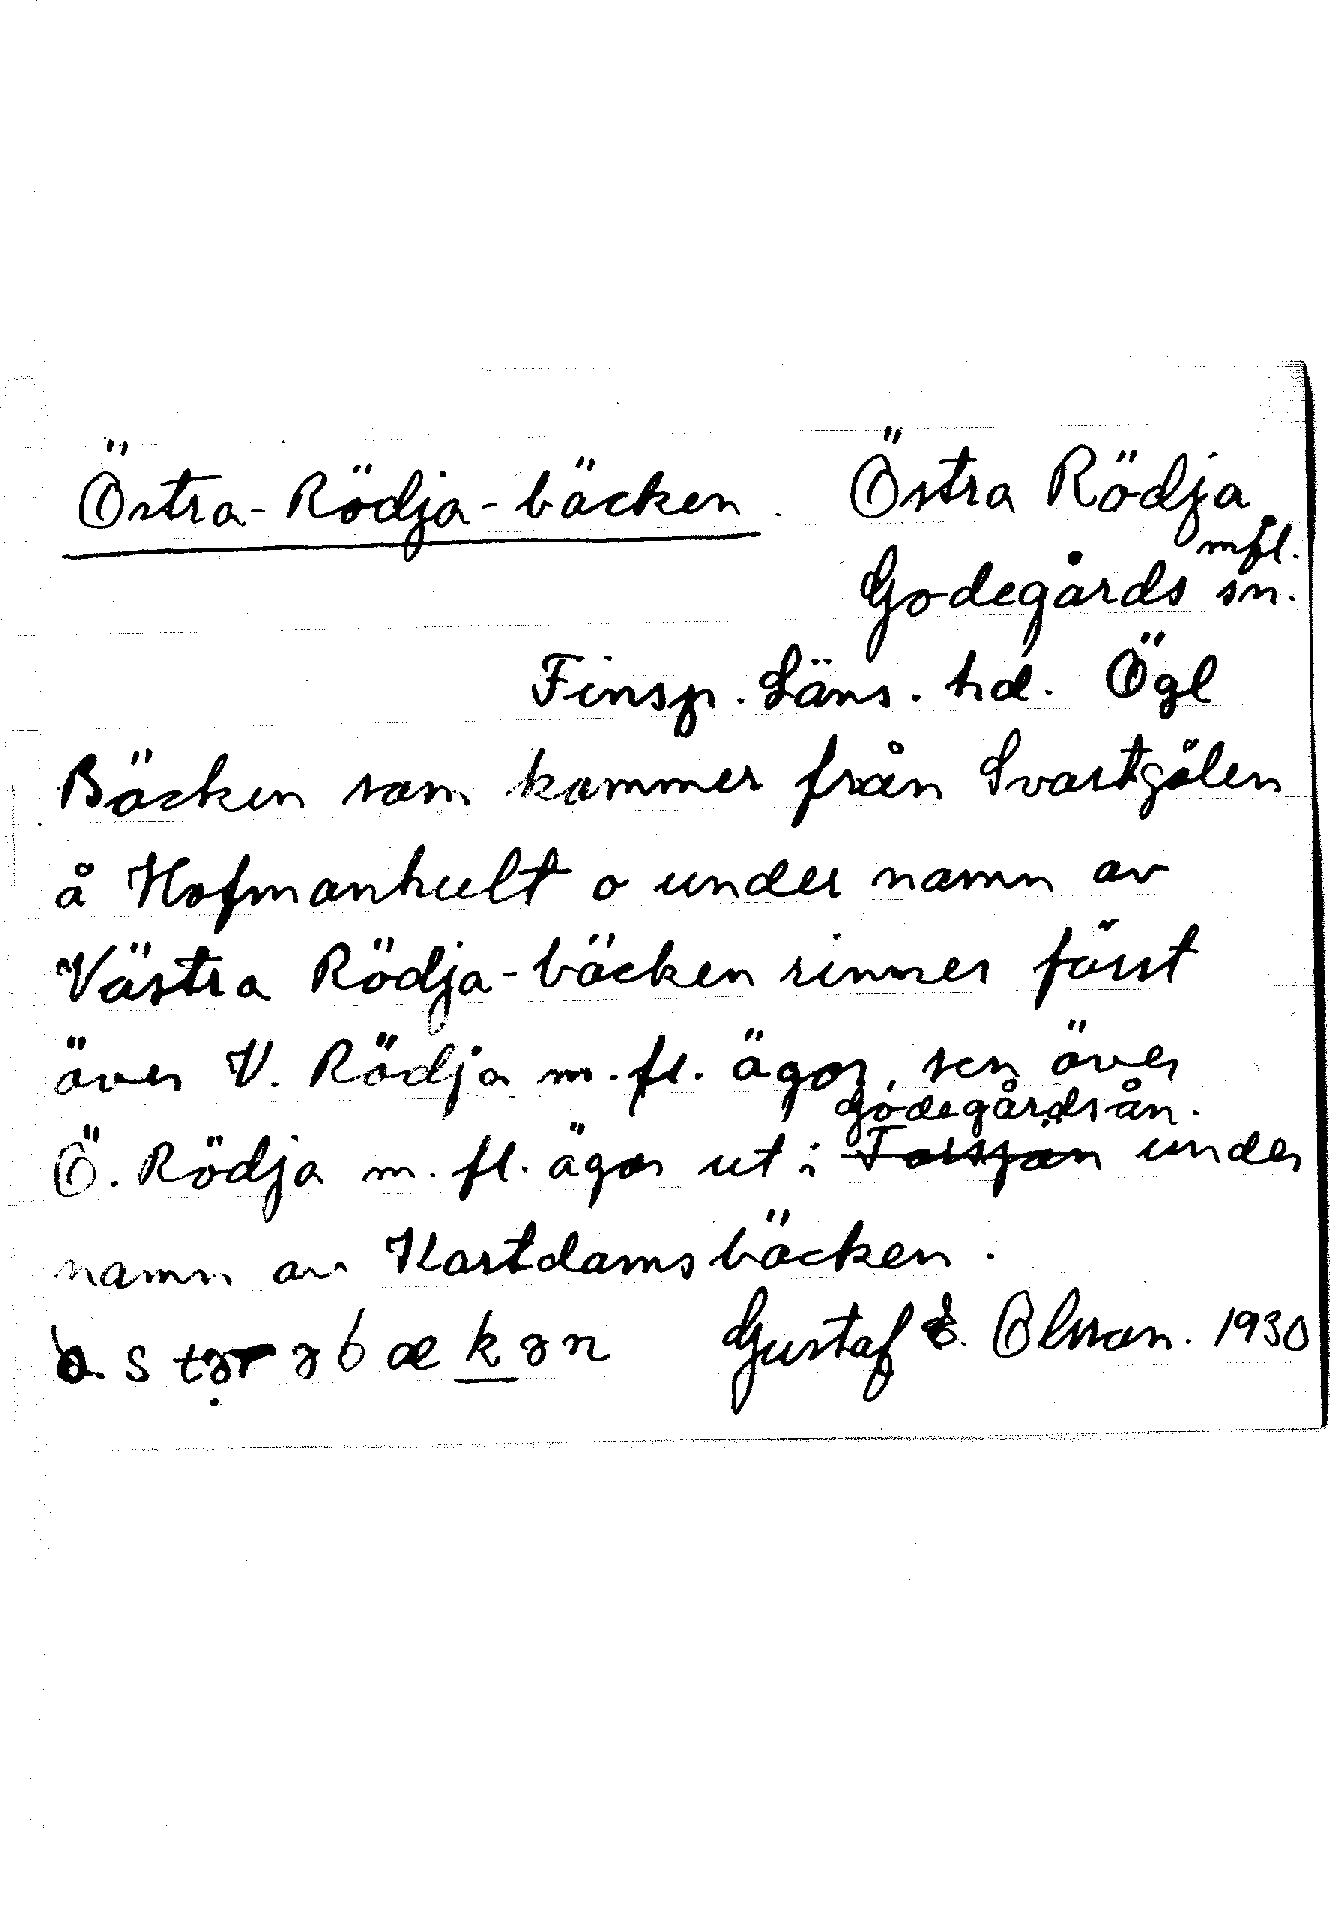 Östra-Rödja-bäcken. Östra Rödja
mfl.
Godegårds sn.
Finsp. Läns. hd. Ögl
Bäcken som kommer från Svartgölen
å Hofmanhult o under namn av
Västra Rödja-bäcken rinner först
över V. Rödja m. fl. ägor, sen över
Godegårdsån.
Ö. Rödja m. fl. ägor ut i under
namn av Kartdamsbäcken.
Gustaf Olsson. 1930